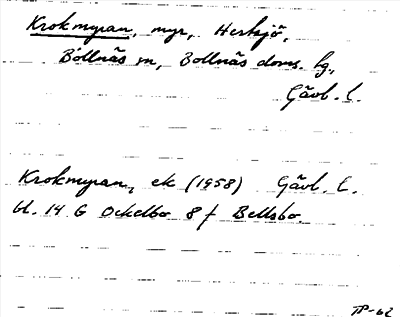 Krokmyran, myr, Hertsjö,
Bollnäs sn, Bollnäs doms. hg.,
Gävl. l.
Krokmyran, ek (1958) Gävl. l.
bl. 14 G Ockelbo 8 f Bellsbo.
TP-62